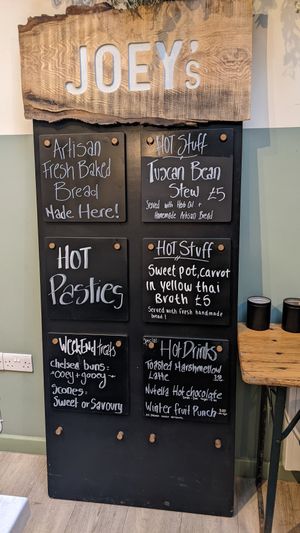 JOEY's
Artisan
Fresh Baked
Bread
Made Here!
HOT Stuff
Tuscan Bean
Stew £5
Served with Herb Oil +
Homemade Artisan Bread
HOT
Pasties
HOT Stuff
Sweet pot, carrot
in yellow thai
Broth £5
Served with fresh handmade
bread!
Weekend treats
chelsea buns:
ooey + gooey
Scones:
Sweet or Savoury
Special
Hot Drinks
Toasted Marshmellow
Latte
Nutella Hot chocolate
Winter fruit Punch